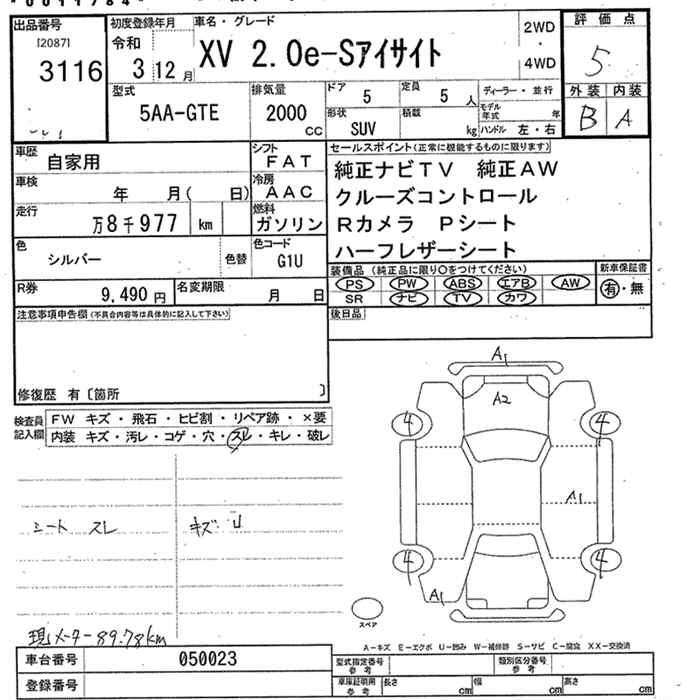 出品番号
[2087]
3116
初度登録年月
令和
3 12月
車名・グレード
XV 2.0e-Sアイサイト
2WD
・
4WD
評価点
5
外装 内装
B A
型式
5AA-GTE
排気量
2000
cc
ドア
5
定員
5 人
形状
SUV
積載
kg
ディーラー・並行
モデル年式 年
ハンドル 左・右
車歴
自家用
車検
年 月( 日)
走行
万8千977 km
色
シルバー
色替
シフト
FAT
冷房
AAC
燃料
ガソリン
色コード
G1U
R券
9,490円
名変期限
月 日
セールスポイント(正常に機能するものに限ります)
純正ナビTV 純正AW
クルーズコントロール
Rカメラ Pシート
ハーフレザーシート
装備品(純正品に限り○をつけてください)
PS PW ABS エアB AW
SR ナビ TV カワ
新車保証書
有・無
後日品
注意事項申告欄(不具合内容等は具体的に記入して下さい)
修復歴 有〔箇所 〕
検査員記入欄
FW キズ・飛石・ヒビ割・リペア跡・×要
内装 キズ・汚レ・コゲ・穴・スレ・キレ・破レ
シート スレ
キズ U
現メーター89.78km
A1
A2
4
4
A1
4
4
A1
スペア
A-キズ E-エクボ U-凹み W-補修跡 S-サビ C-腐食 XX-交換済
車台番号
050023
登録番号
型式指定番号
参考
類別区分番号
参考
車庫証明用
参考
長さ cm
幅 cm
高さ cm